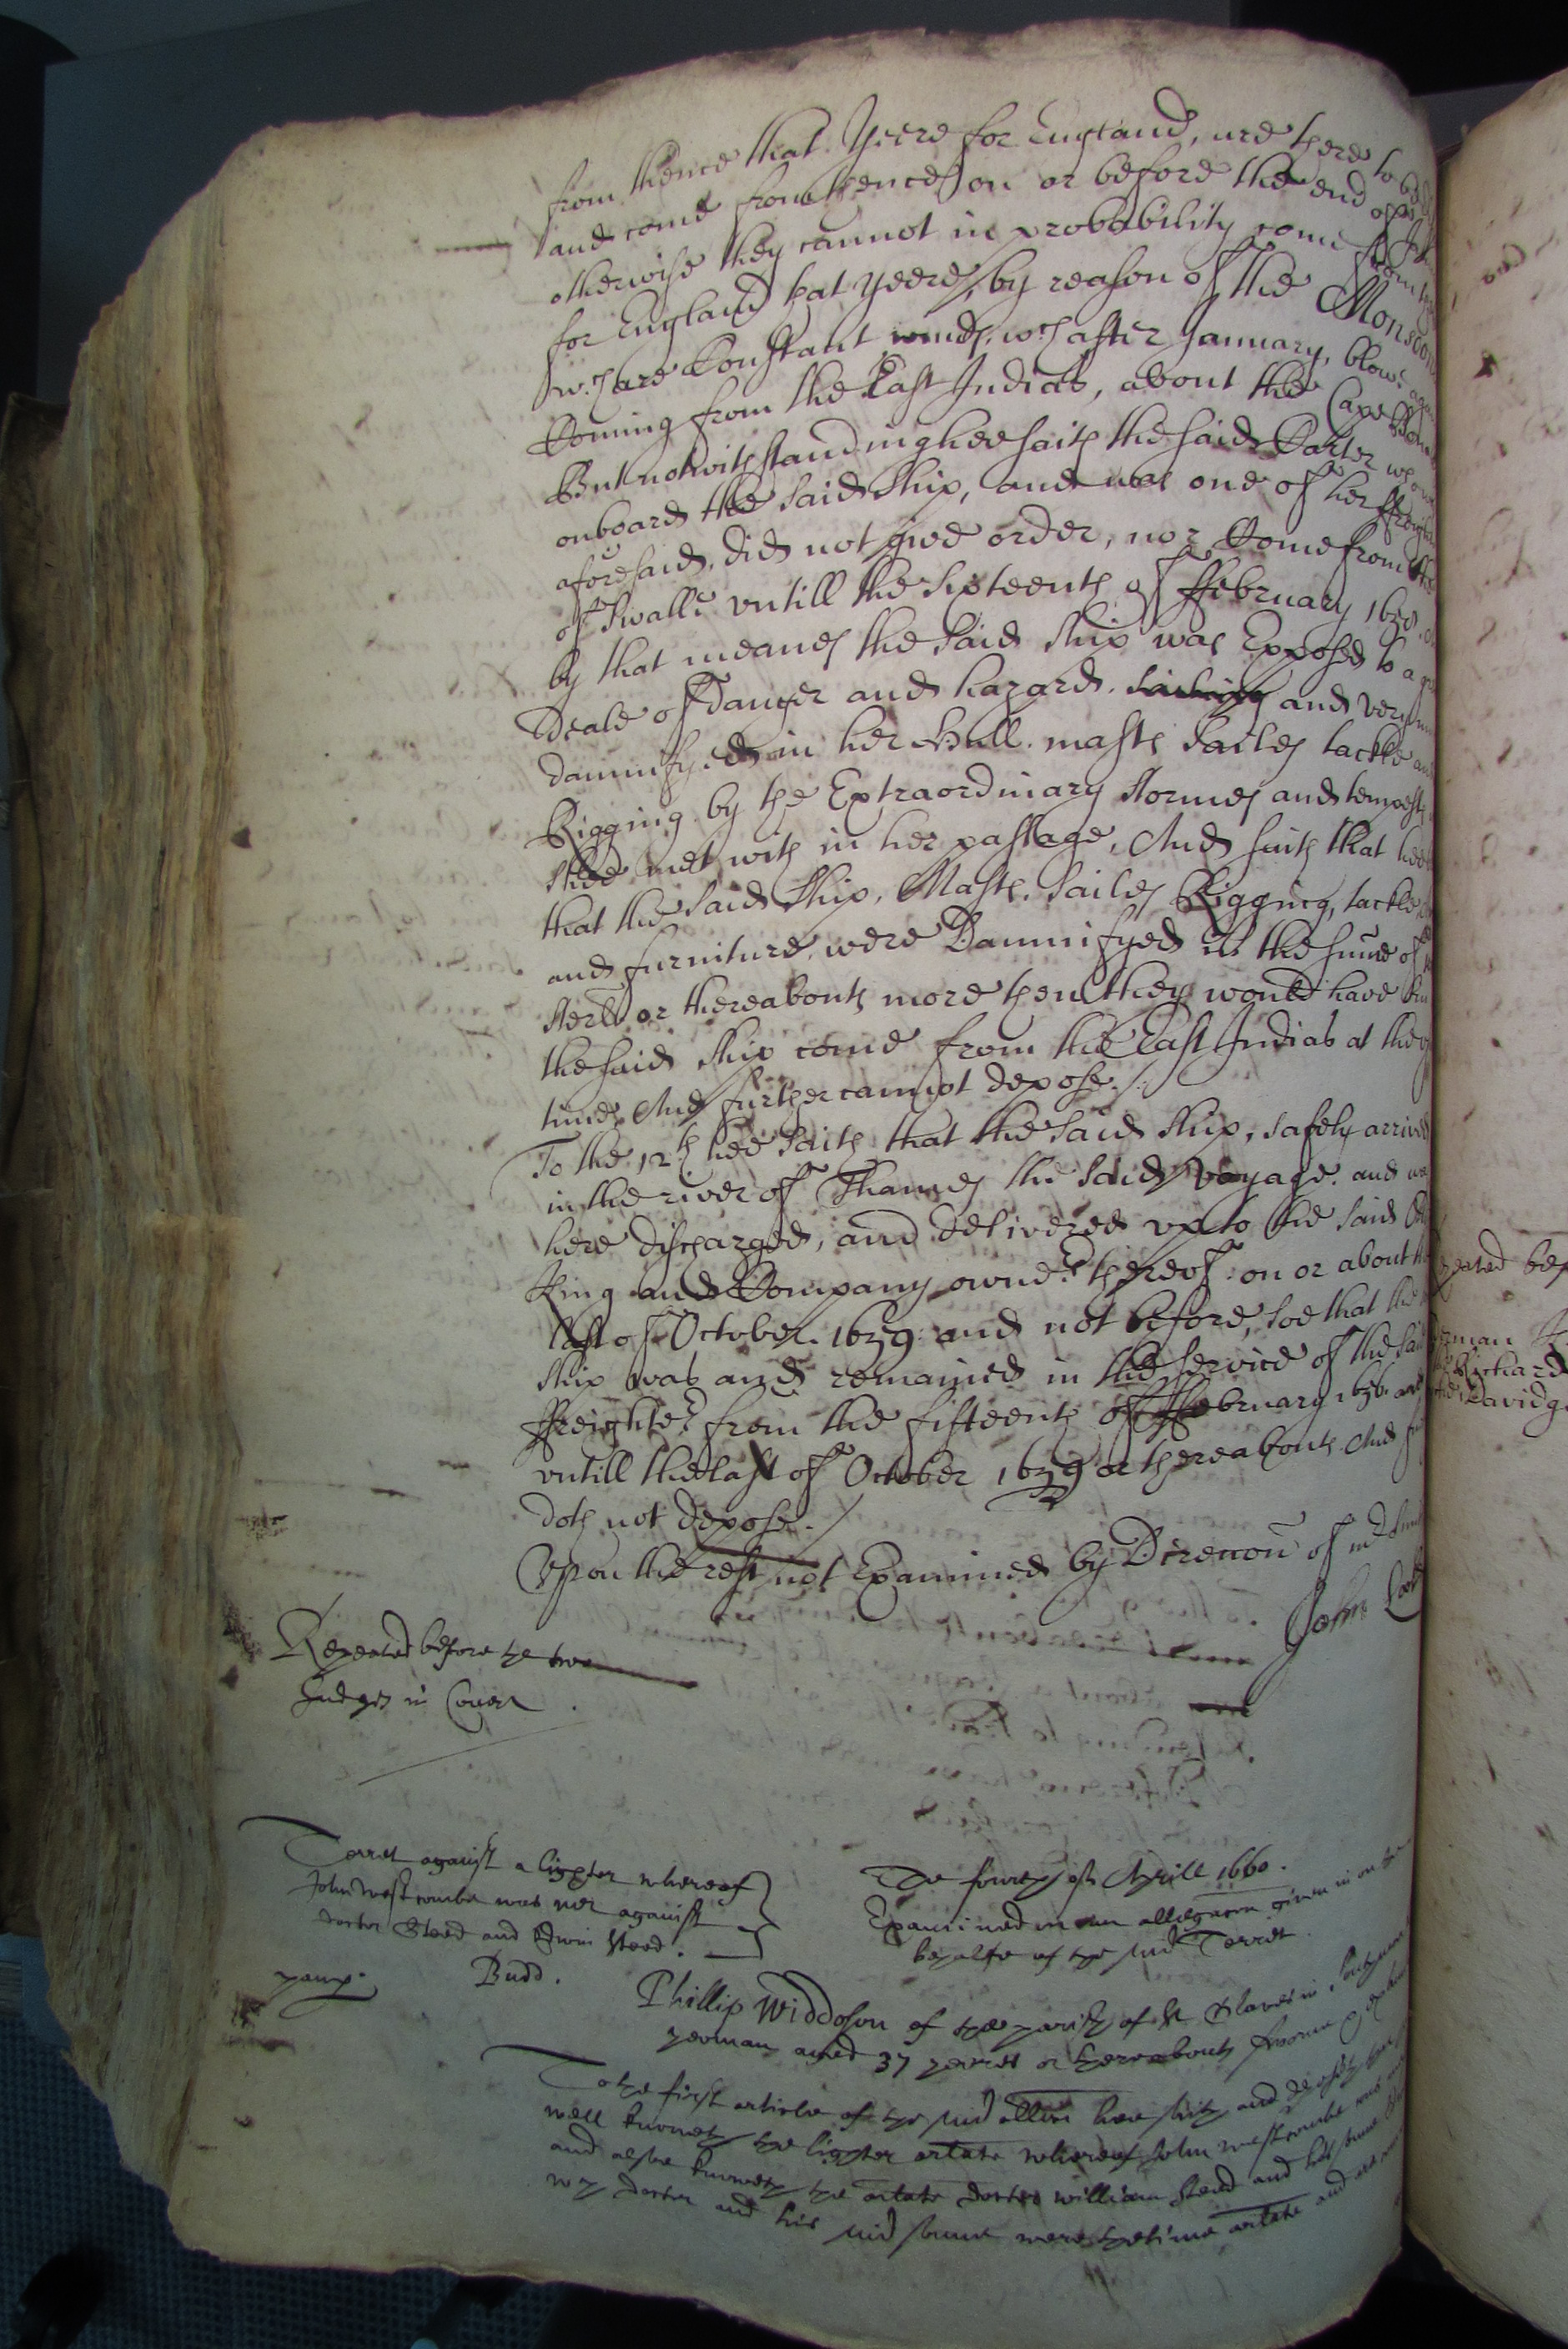 from thence that Yeere for England, are there to be
and come from thence on or before the end of
otherwise they cannot in probability come from
for England that yeere, by reason of the Monsoon
wch are Constant winds, wch after January, blow
Coming from the East Indias, about the Cape
But notwithstanding hee saith the said Carter
onboard the said ship, and was one of her ffreigh
aforesaid, did not give order, nor Come from the
of Swally untill the sixteenth of ffebruary 1658
by that meanes the said ship was Exposed to a
Deale of Danger and hazard, and very
damnifyed in her Hull, masts sailes tackle and
Rigging by the Extraordinary stormes and tempests
shee met with in her passage, And saith that hee
that the said ship, Masts, Sailes Rigging, tackle
and furniture were Damnifyed in the sume of
sterl or thereabouts more then they would have
the said ship come from the East Indias at the
time, And further cannot depose./
To the 12th hee saith that the said ship, safely arrived
in the river of Thames the said Voyage, and was
here discharged, and delivered up to the said
King and Company owners thereof on or about the
last of October 1659 and not before, soe that the
ship was and remained in the service of the said
ffreighters from the fifteenth of ffebruary 1656
untill the last of October 1659 or thereabouts And
doth not depose./
Upon the rest not Examined by Direcon of
John
Repeated before the two
Judges in Court
Terret against a lighter whereof
John Westcombe was mr against
doctor Steed and Edwin Steed.
Budd.
The fourth of Aprill 1660.
Examined on an allegacon given in on the
behalfe of the said Terret
Phillip Widdoson of the parish of St Olaves in
yeoman aged 37 yeares or thereabouts sworne
To the first article of the said allon hee saith and deposeth that
well knoweth the lighter arlate whereof John Westcombe was
and alsoe knoweth the arlate doctor William Steed and his sonne
doctor and his said sonne were the time arlate and